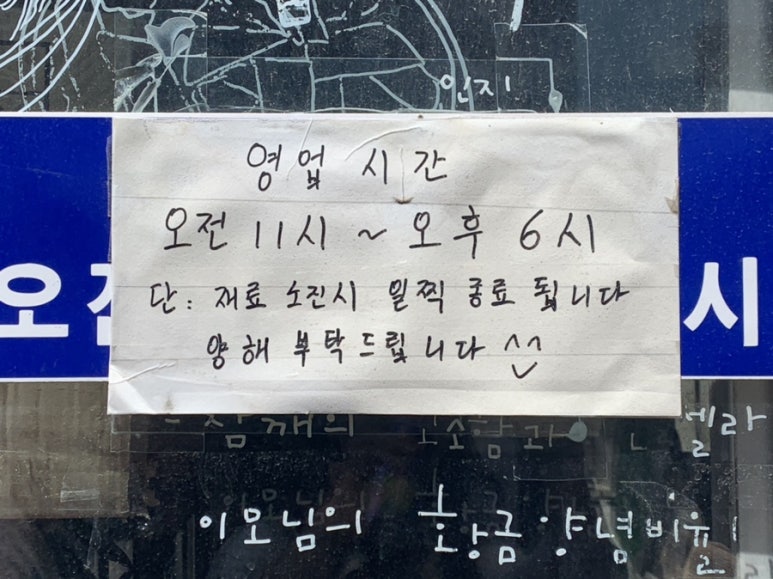 인지
영업 시간
오전 11시 ~ 오후 6시
단: 재료 소진시 일찍 종료 됩니다
양해 부탁드립니다 ^^
오전 시
참깨의 고소함과 셀라
이모님의 황금양념비율!